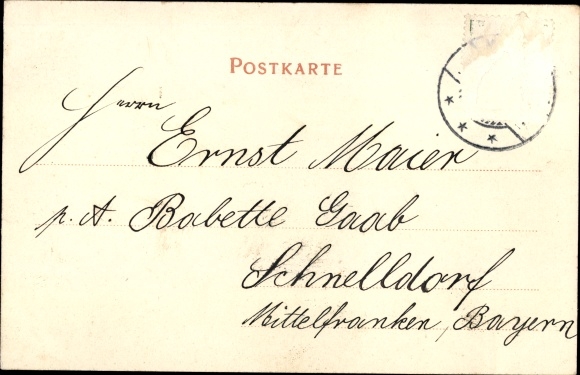 POSTKARTE
Herrn
Ernst Maier
p. A. Babette Gaab
Schnelldorf
Mittelfranken, Bayern